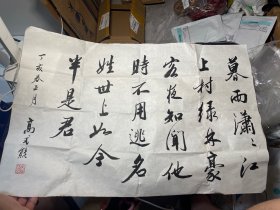 暮雨瀟〻江
上村绿林豪
客夜知闻他
時不用逃名
姓世上如今
半是君
丁亥春三月
高